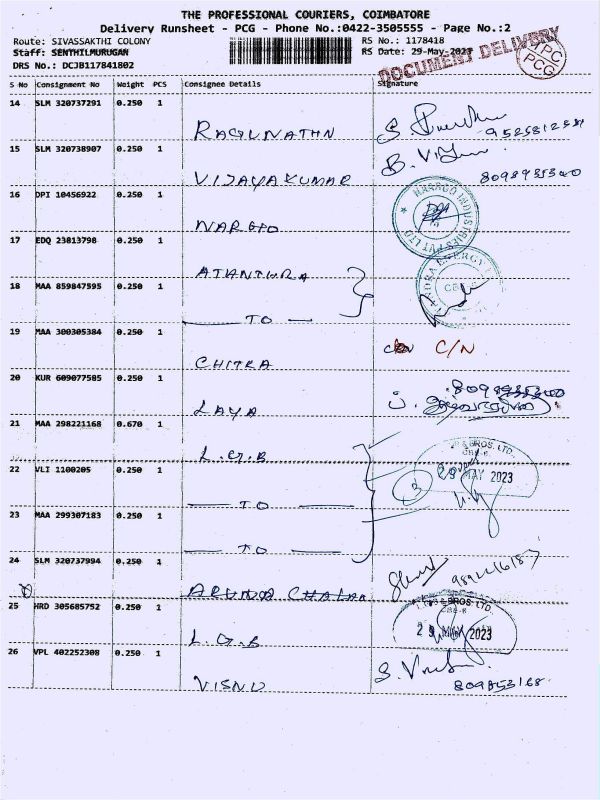 THE PROFESSIONAL COURIERS, COIMBATORE
Delivery Runsheet - PCG - Phone No.:0422-3505555 - Page No.:2
Route: SIVASSAKTHI COLONY
RS No.: 1178418
Staff: SENTHILMURUGAN
RS Date: 29-May-2023
DRS No.: DCJB117841802
DOCUMENT DELIVERY
TPC
PCG
S No Consignment No Weight PCS Consignee Details Signature
14 SLM 320737291 0.250 1
RAGUNATHN
15 SLM 320738907 0.250 1
VIJAYAKUMAR
8098955300
16 DPI 10456922 0.250 1
NARGIO
17 EDQ 23813798 0.250 1
ATANTHRA
18 MAA 859847595 0.250 1
TO
19 MAA 300305384 0.250 1
CHITRA C/N
20 KUR 609077585 0.250 1
LAYA
21 MAA 298221168 0.670 1
L.G.B
& BROS. LTD.
CBE-6.
29 MAY 2023
22 VLI 1100205 0.250 1
TO
3
23 MAA 299307183 0.250 1
TO
24 SLM 320737994 0.250 1
ARUNA CHALAM
25 HRD 305685752 0.250 1
L.G.B
& BROS. LTD.
CBE-6
29 MAY 2023
26 VPL 402252308 0.250 1
VISNU